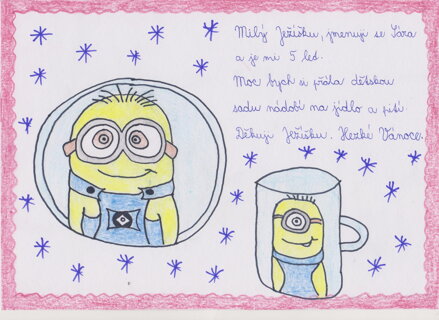 Milý Ježíšku, jmenuji se Sára
a je mi 5 let.
Moc bych si přála dětskou
sadu nádobí na jídlo a pití.
Děkuji Ježíšku. Hezké Vánoce.